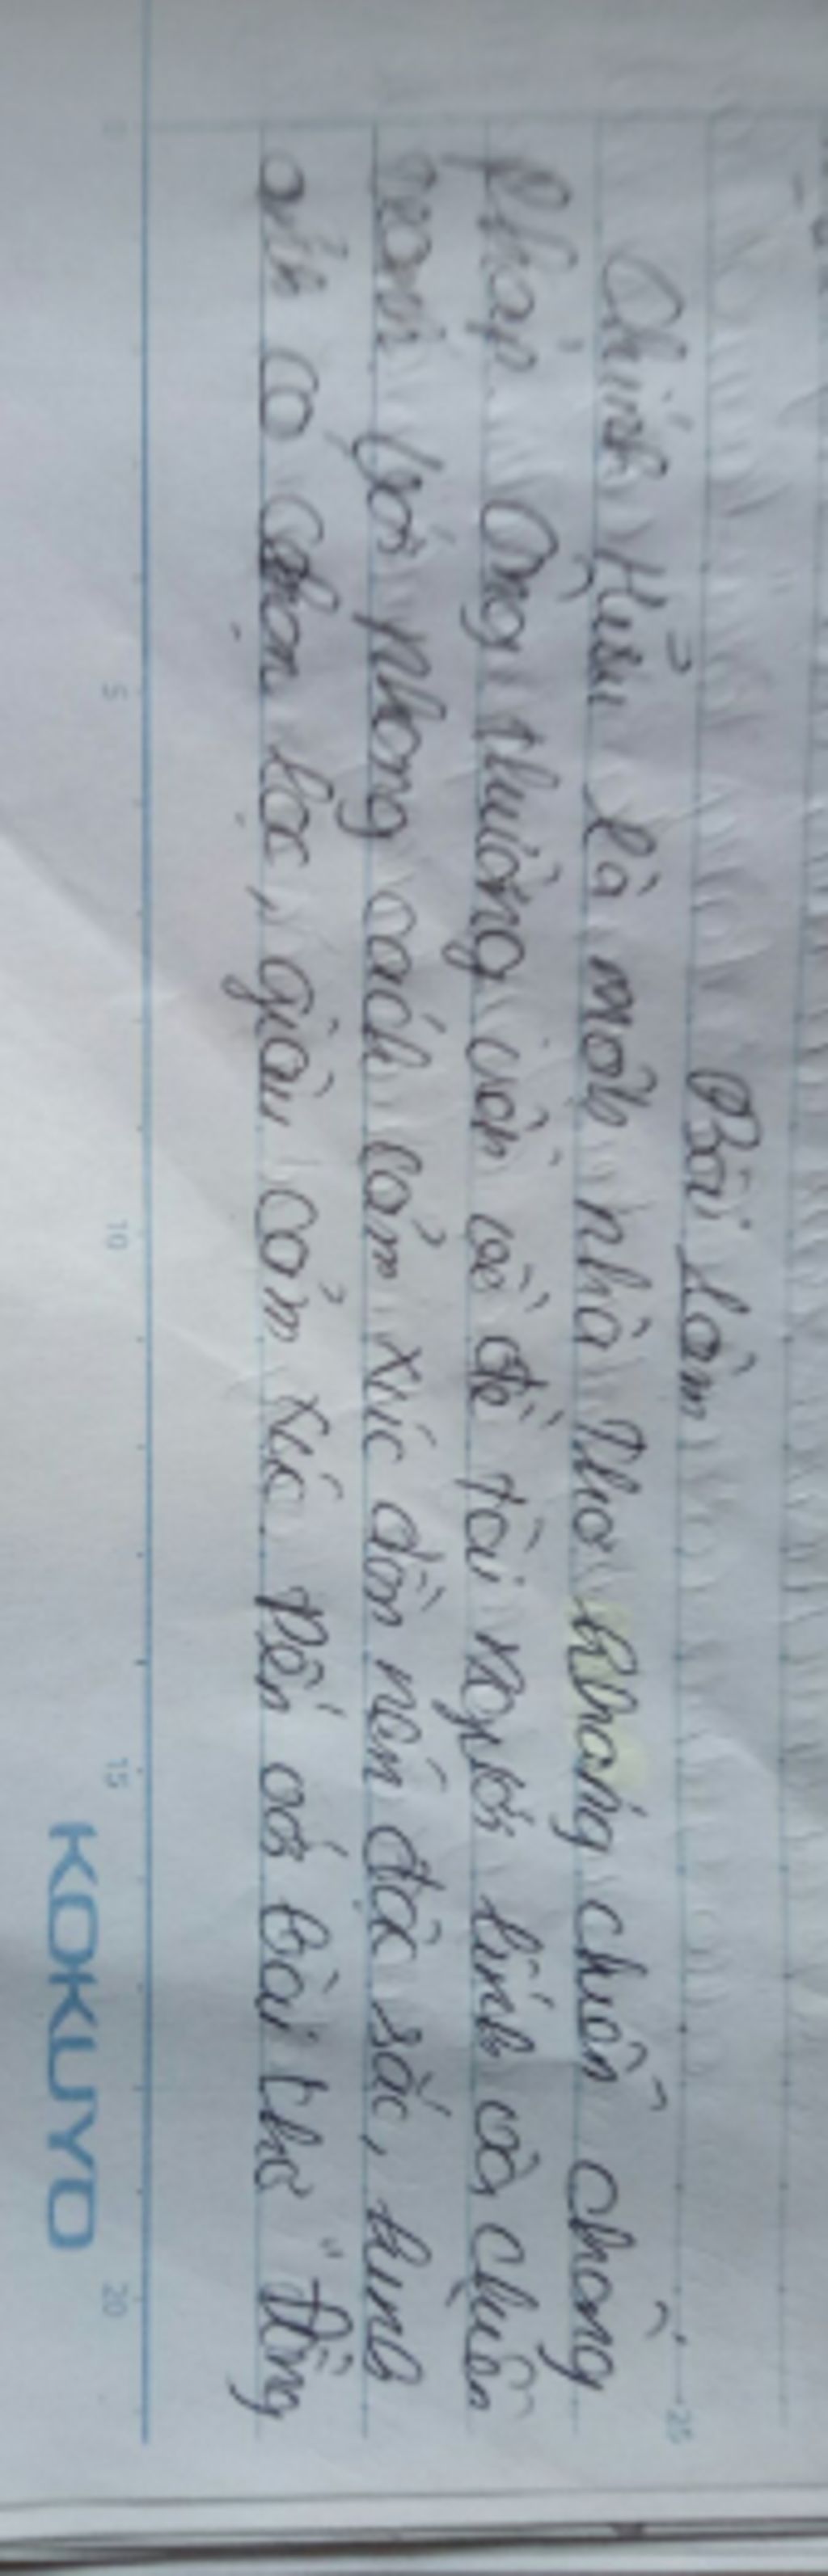 Bài làm
Chính Hữu là một nhà thơ kháng chiến chống
Pháp. Ông thường viết về đề tài người lính và chiến
tranh với phong cách cảm xúc dồn nén đặc sắc, hình
ảnh cô chọn lọc, giàu cảm xúc. Đến với bài thơ "Đồng
0 5 10 15 20 25
KOKUYO